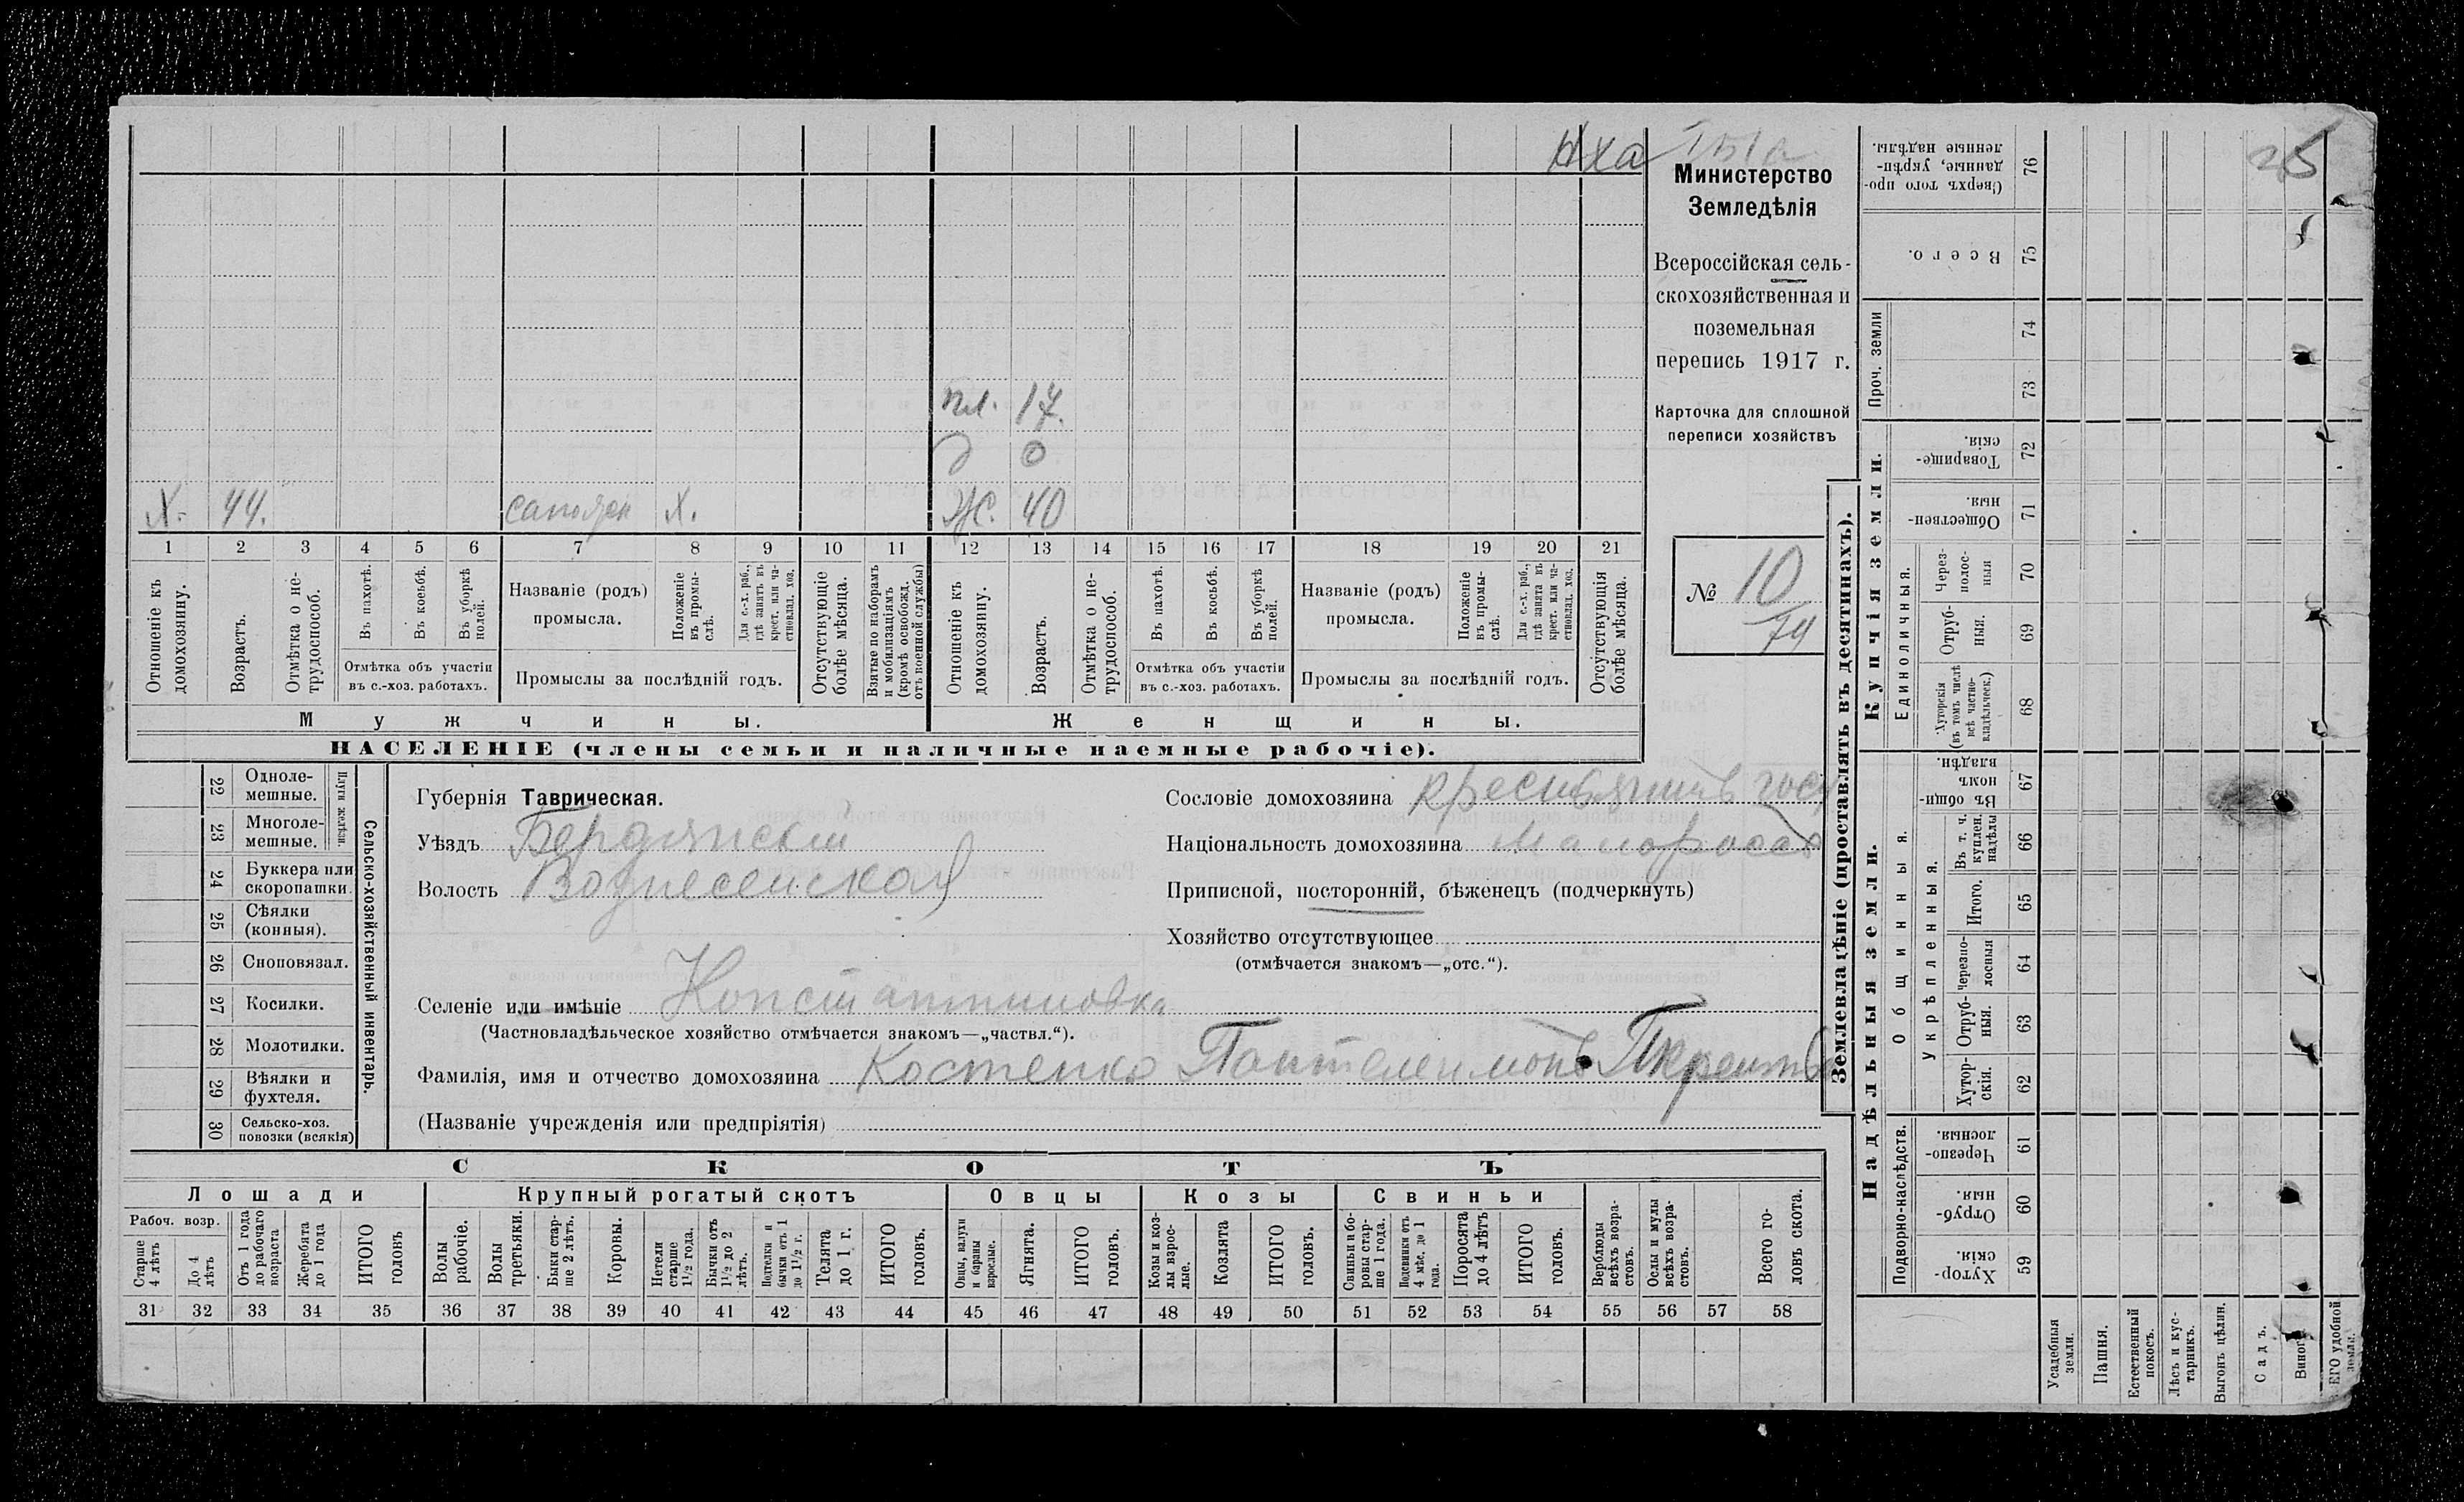 Министерство
Земледѣлія
Всероссійская сель-
скохозяйственная и
поземельная
перепись 1917 г.
Карточка для сплошной
переписи хозяйствъ
№ 10
74
пл. 17.
д 0
Х. 44. Х. Ж. 40
1 2 3 4 5 6 7 8 9 10 11 12 13 14 15 16 17 18 19 20 21
Отношеніе къ домохозяину.
Возрастъ.
Отмѣтка о не-трудоспособ.
Въ пахотѣ.
Въ косьбѣ.
Въ уборкѣ полей.
Отмѣтка объ участіи
въ с.-хоз. работахъ.
Названіе (родъ)
промысла.
Положеніе въ промы-слѣ.
Для с.-х. раб., гдѣ занятъ въ крест. или ча-стновлад. хоз.
Промыслы за послѣдній годъ.
Отсутствующіе болѣе мѣсяца.
Взятые по наборамъ и мобилизаціямъ (кромѣ освобожд. отъ военной службы)
Отношеніе къ домохозяину.
Возрастъ.
Отмѣтка о не-трудоспособ.
Въ пахотѣ.
Въ косьбѣ.
Въ уборкѣ полей.
Отмѣтка объ участіи
въ с.-хоз. работахъ.
Названіе (родъ)
промысла.
Положеніе въ промы-слѣ.
Для с.-х. раб., гдѣ занята въ крест. или ча-стновлад. хоз.
Промыслы за послѣдній годъ.
Отсутствующія болѣе мѣсяца.
Мужчины. Женщины.
НАСЕЛЕНІЕ (члены семьи и наличные наемные рабочіе).
22 Одноле-мешные.
23 Многоле-мешные.
24 Буккера или скоропашки.
25 Сѣялки (конныя).
26 Сноповязал.
27 Косилки.
28 Молотилки.
29 Вѣялки и фухтеля.
30 Сельско-хоз. повозки (всякія)
Плуги желѣзн.
Сельско-хозяйственный инвентарь.
Губернія Таврическая.
Уѣздъ Бердянскій
Волость Вознесенская
Сословіе домохозяина крестьянинъ
Національность домохозяина малороссъ
Приписной, посторонній, бѣженецъ (подчеркнуть)
Хозяйство отсутствующее
(отмѣчается знакомъ—„отс.“).
Селеніе или имѣніе Константиновка
(Частновладѣльческое хозяйство отмѣчается знакомъ—„частвл.“).
Фамилія, имя и отчество домохозяина Костенко Пантелеимонъ
(Названіе учрежденія или предпріятія)
СКОТЪ
Лошади Крупный рогатый скотъ Овцы Козы Свиньи
Рабоч. возр.
Старше 4 лѣтъ
До 4 лѣтъ
Отъ 1 года до рабочаго возраста
Жеребята до 1 года
ИТОГО головъ
Волы рабочіе.
Волы третьяки.
Быки стар-ше 2 лѣтъ.
Коровы.
Нетели старше 1½ года.
Бычки отъ 1½ до 2 лѣтъ.
Подтелки и бычки отъ 1 до 1½ г.
Телята до 1 г.
ИТОГО головъ.
Овцы, валухи и бараны взрослые.
Ягнята.
ИТОГО головъ.
Козы и коз-лы взрос-лые.
Козлята
ИТОГО головъ.
Свиньи и бо-ровы стар-ше 1 года.
Подсвинки отъ 4 мѣс. до 1 года.
Поросята до 4 лѣтъ
ИТОГО головъ.
Верблюды всѣхъ возра-стовъ.
Ослы и мулы всѣхъ возра-стовъ.
Всего го-ловъ скота.
31 32 33 34 35 36 37 38 39 40 41 42 43 44 45 46 47 48 49 50 51 52 53 54 55 56 57 58
Землевладѣніе (проставлять въ десятинахъ).
Купчія земли.
Надѣльныя земли.
Проч. земли
Единоличныя.
Общинныя.
Укрѣпленныя.
Подворно-наслѣдств.
76 Сверхъ того про-данные, укрѣп-ленные надѣлы.
75 Всего.
74
73
72 Товарище-скія.
71 Обществен-ныя.
70 Через-полос-ныя
69 Отруб-ныя.
68 Хуторскія (въ томъ числѣ всѣ частно-владѣльческ.)
67 Въ общи-номъ владѣн.
66 Въ т. ч. куплен. надѣлы
65 Итого.
64 Черезпо-лосныя
63 Отруб-ныя.
62 Хутор-скія.
61 Черезпо-лосныя.
60 Отруб-ныя.
59 Хутор-скія.
Усадебныя земли.
Пашня.
Естественный покосъ.
Лѣсъ и кус-тарникъ.
Выгонъ цѣлин.
Садъ.
ЕГО удобной земли.